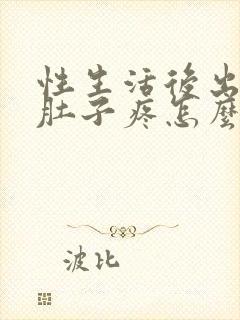 性生活後出
肚子疼怎麼
波比